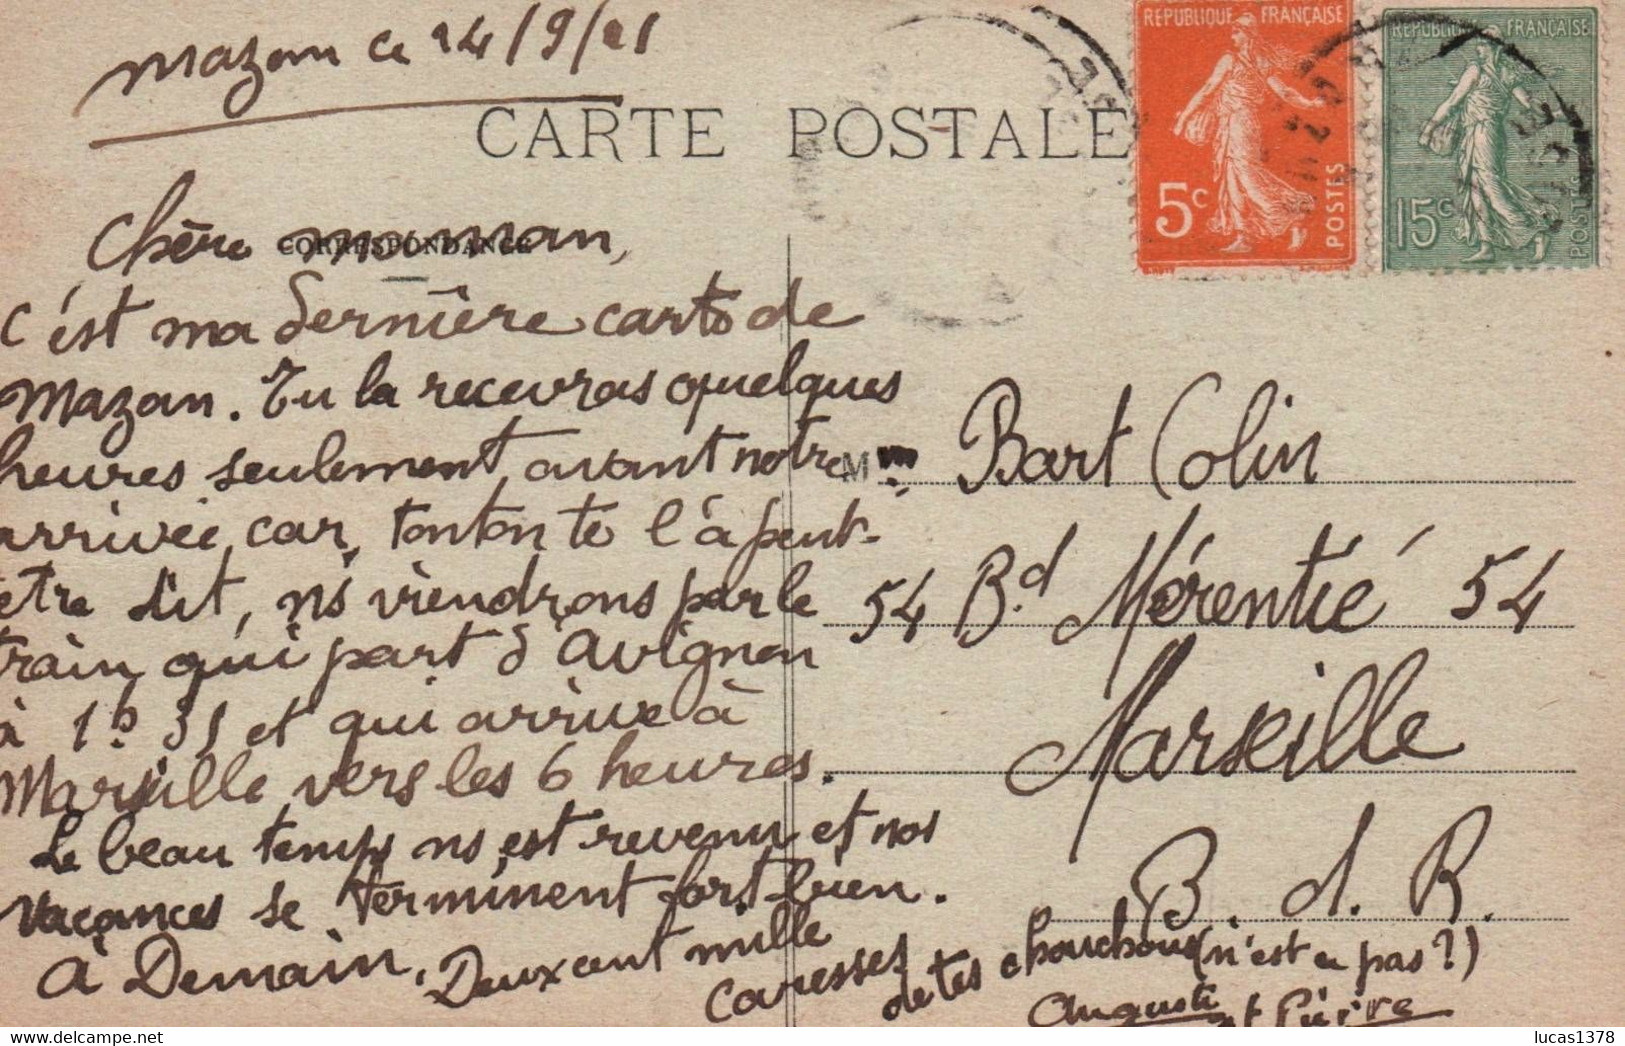 Mazan ce 24/9/21
CARTE POSTALE
REPUBLIQUE FRANÇAISE
5c
POSTES
REPUBLIQUE FRANÇAISE
15c
POSTES
CORRESPONDANCE
Chère maman,
c'est ma dernière carte de
Mazan. Tu la recevras quelques
heures seulement avant notre
arrivée, car, tonton te l'a peut-
être dit, ns viendrons par le
train qui part d'Avignon
à 1h 31 et qui arrive à
Marseille vers les 6 heures.
Le beau temps ns est revenu et nos
vacances se terminent fort bien.
à Demain. Deux cent mille
caresses
de tes chouchous (n'est ce pas?)
Auguste
et Pierre
Mme Bart Colin
54 Bd. Mérentié 54
Marseille
B. d. R.
lucas1378